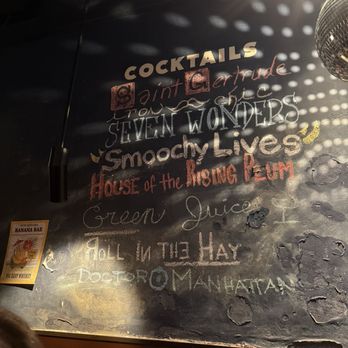 COCKTAILS
Saint Gertrude
SEVEN WONDERS
"Smoochy Lives"
HOUSE of the RISING PLUM
Green Juice
ROLL IN THE HAY
DOCTOR MANHATTAN
BANANA BAR